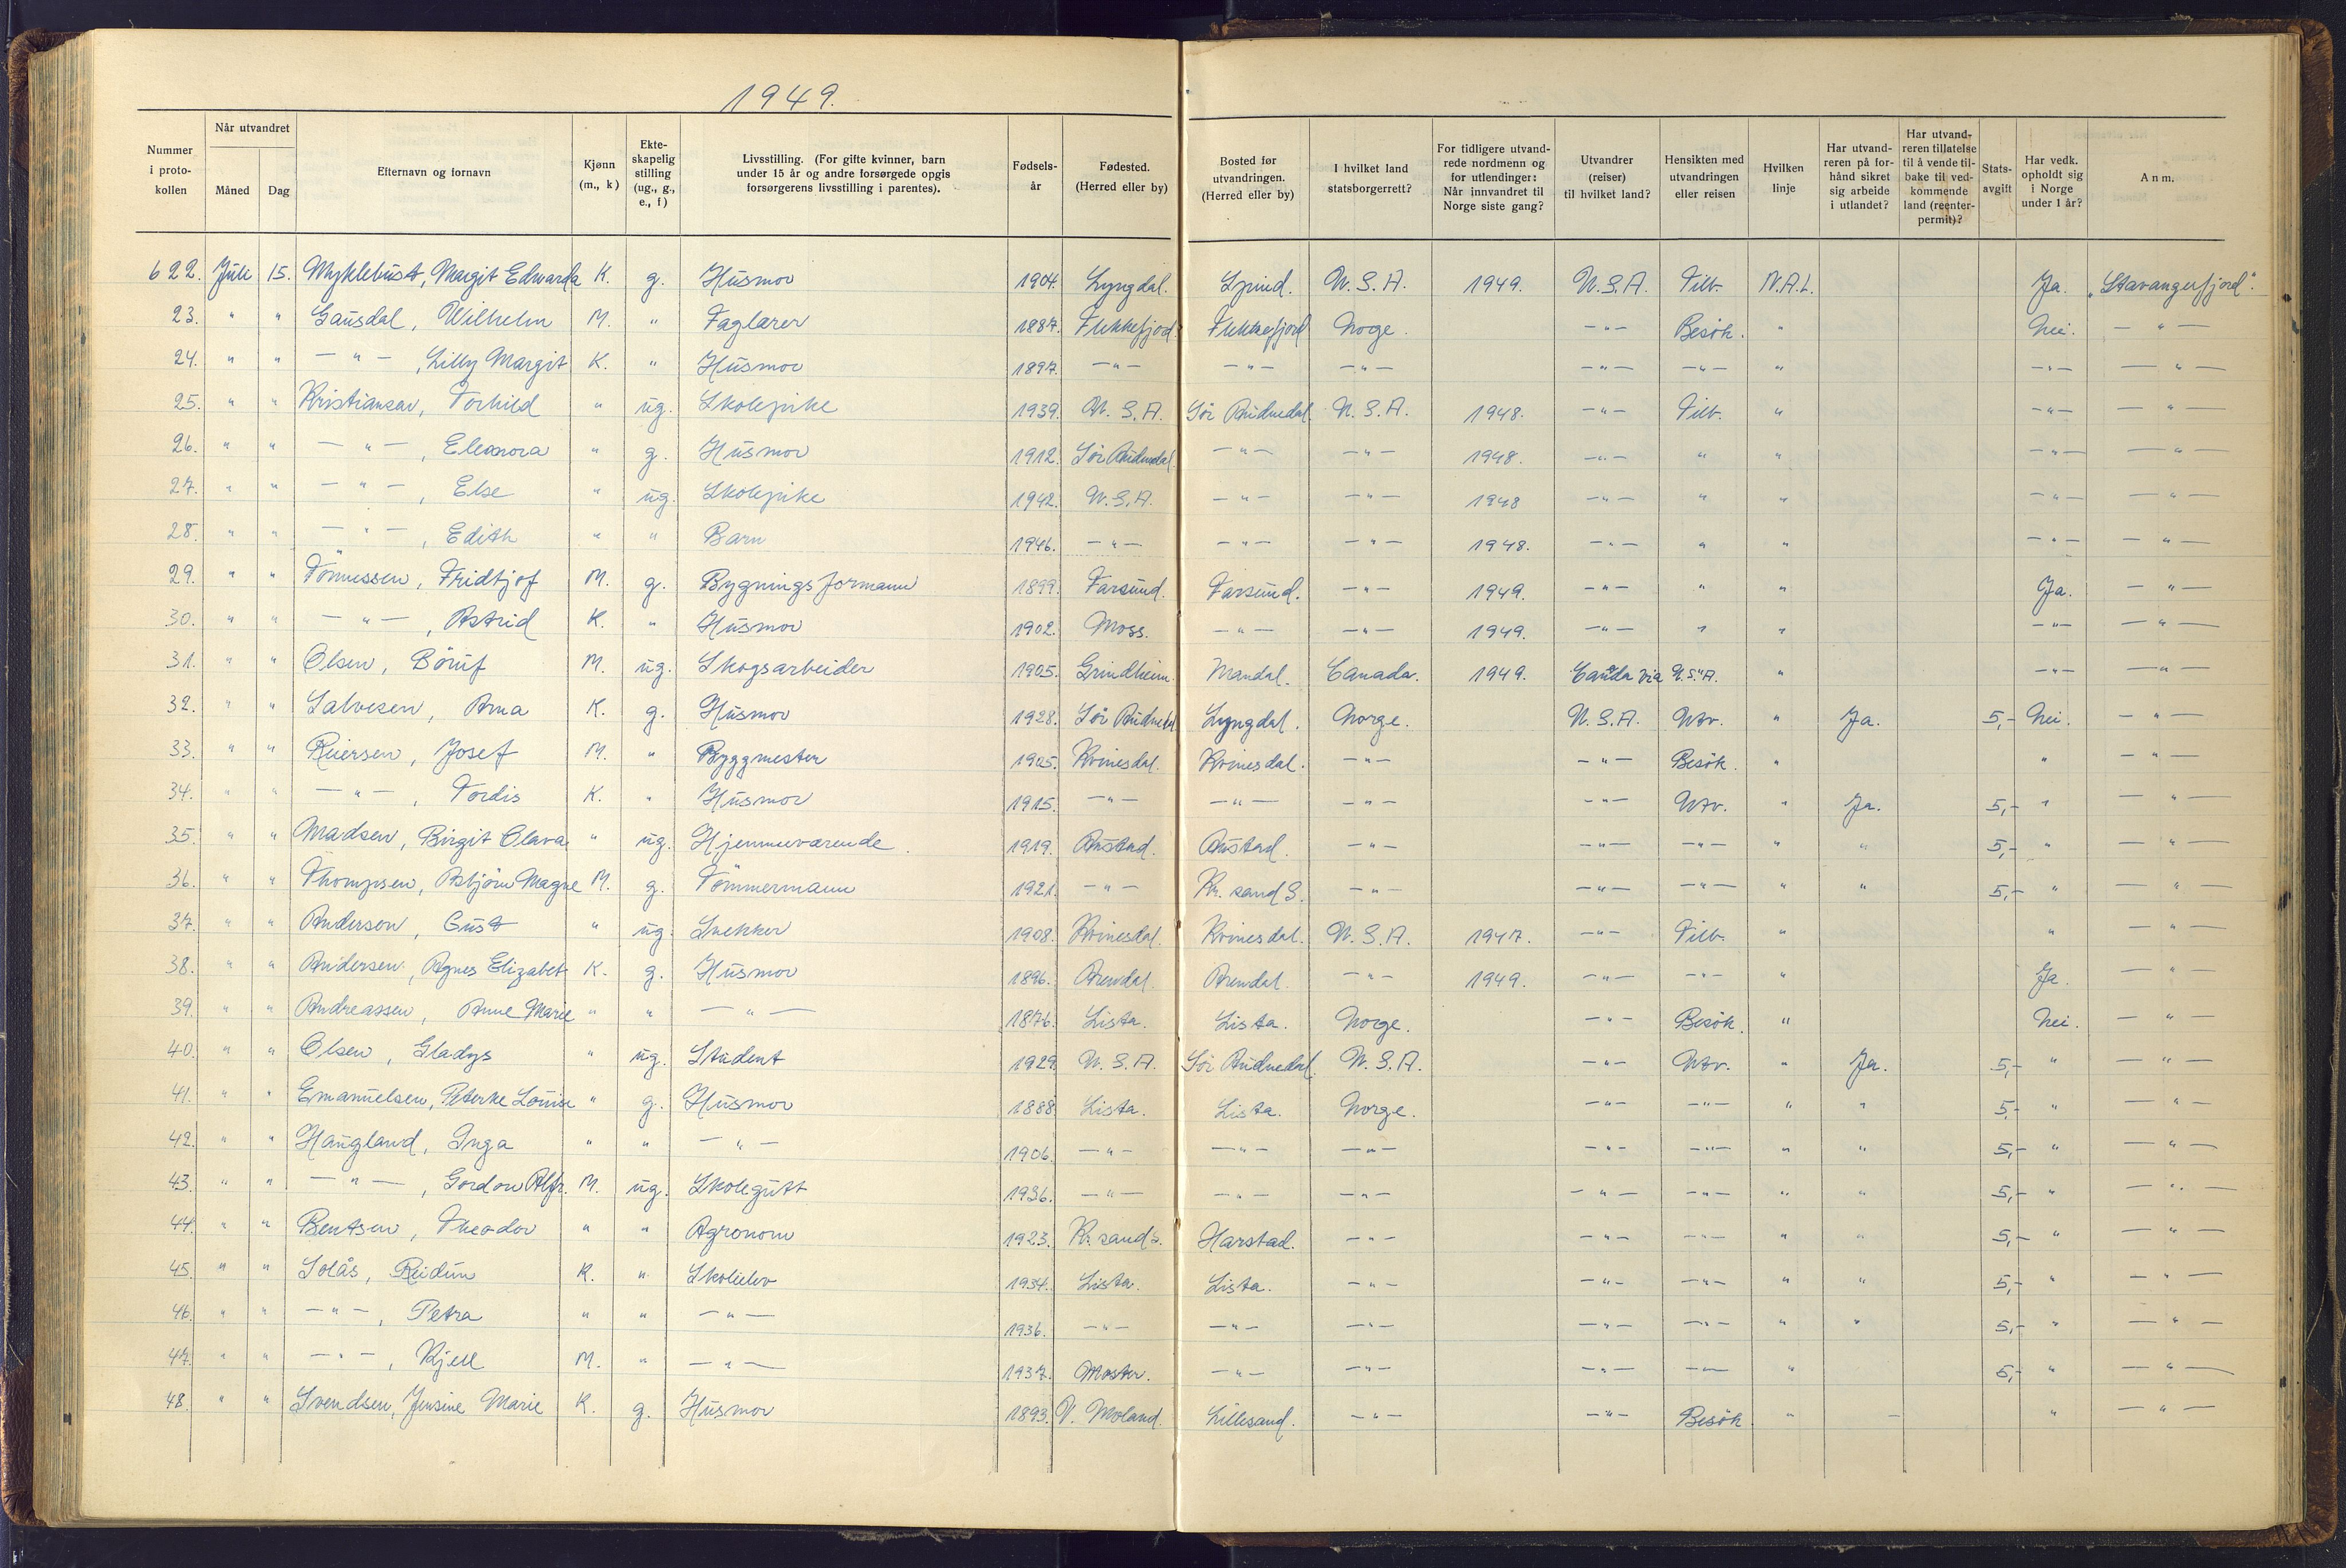 1949.
Nummer i proto-kollen | Når utvandret Måned | Dag | Efternavn og fornavn | Kjønn (m., k) | Ekte-skapelig stilling (ug., g., e., f) | Livsstilling. (For gifte kvinner, barn under 15 år og andre forsørgede opgis forsørgerens livsstilling i parentes). | Fødsels-år | Fødested. (Herred eller by) | Bosted før utvandringen. (Herred eller by) | I hvilket land statsborgerrett? | For tidligere utvand-rede nordmenn og for utlendinger: Når innvandret til Norge siste gang? | Utvandrer (reiser) til hvilket land? | Hensikten med utvandringen eller reisen | Hvilken linje | Har utvand-reren på for-hånd sikret sig arbeide i utlandet? | Har utvand-reren tillatelse til å vende til-bake til ved-kommende land (reenter-permit)? | Stats-avgift | Har vedk. opholdt sig i Norge under 1 år? | Anm.
622. Juli 15. Myklebust, Margit Edwarda K. g. Husmor 1904. Lyngdal. Spind. U.S.A. 1949. U.S.A. Tilb. N.A.L. Ja. "Stavangerfjord".
23. " " Gausdal, Wilhelm M. " Faglærer 1887. Flekkefjord. Flekkefjord Norge. —"— Besök. " Nei. —"—
24. " " —"—, Lilly Margit K. " Husmor 1897. —"— —"— —"— —"— —"— " —"— —"—
25. " " Kristiansen, Torhild " ug. Skolepike 1939. U.S.A. Sör Audnedal. U.S.A. 1948. —"— Tilb. " —"— —"—
26. " " —"—, Eleonora " g. Husmor 1912. Sör Audnedal. —"— —"— 1948. —"— " " —"— —"—
27. " " —"—, Else " ug. Skolepike 1942. U.S.A. —"— —"— 1948 —"— " " —"— —"—
28. " " —"—, Edith " " Barn 1946. —"— —"— —"— 1948. —"— " " —"— —"—
29. " " Tönnessen, Fridtjof M. g. Bygningsformann 1899. Farsund. Farsund. —"— 1949. —"— " " Ja. —"—
30. " " —"—, Astrid K. " Husmor 1902. Moss. —"— —"— 1949. —"— " " —"— —"—
31. " " Olsen, M. ug. Skogsarbeider 1905. Grindheim. Mandal. Canada. 1949. Canada via U.S.A. " —"— —"—
32. " " Salvesen, Arna K. g. Husmor 1928. Sör Audnedal Lyngdal. Norge. U.S.A. Utv. " Ja. 5,- Nei. —"—
33. " " Reiersen, Josef M. " Byggmester 1905. Kvinesdal. Kvinesdal. —"— —"— Besök. " " —"—
34. " " —"—, Tordis K. " Husmor 1915. —"— —"— —"— —"— Utv. " Ja. 5,- " —"—
35 " " Madsen, Birgit Olava " ug. Hjemmeværende. 1919. Austad. Austad. —"— —"— —"— " " 5,- " —"—
36. " " Thompsen, Asbjörn Magne M. g. Tömmermann 1921. —"— Kr.sand S. —"— —"— —"— " " 5,- " —"—
37. " " Anderson, Gust " ug. Snekker 1908. Kvinesdal. Kvinesdal. U.S.A. 1947. —"— Tilb. " " —"—
38. " " Andersen, Agnes Elizabet K. g. Husmor 1896. Arendal. Arendal. —"— 1949. —"— —"— " Ja. —"—
39. " " Andreassen, Anne Marie " " —"— 1876. Lista. Lista. Norge. —"— Besök. " Nei. —"—
40. " " Olsen, Gladys " ug. Student 1929. U.S.A. Sör Audnedal. U.S.A. —"— Utv. " Ja. 5,- " —"—
41. " " Emanuelsen, Peterke Louise " g. Husmor 1888. Lista. Lista. Norge. —"— —"— " " 5,- " —"—
42. " " Haugland, Inga " " —"— 1906. —"— —"— —"— —"— —"— " " 5,- " —"—
43. " " —"—, Gordon Alfr. M. ug. Skolegutt 1936. —"— —"— —"— —"— —"— " " 5,- " —"—
44. " " Bentsen, Theodor " " Agronom 1923. Kr.sand S. Harstad. —"— —"— —"— " " 5,- " —"—
45. " " Solås, Reidun K. " Skoleelev 1934. Lista. Lista. —"— —"— —"— " " 5,- " —"—
46. " " —"—, Petra " " —"— 1936. —"— —"— —"— —"— —"— " " 5,- " —"—
47. " " —"—, Kjell M. " —"— 1937. Moster. —"— —"— —"— —"— " 5,- " —"—
48. " " Svendsen, Jensine Marie K. g. Husmor 1893. V. Moland. Lillesand. —"— —"— Besök " — " —"—